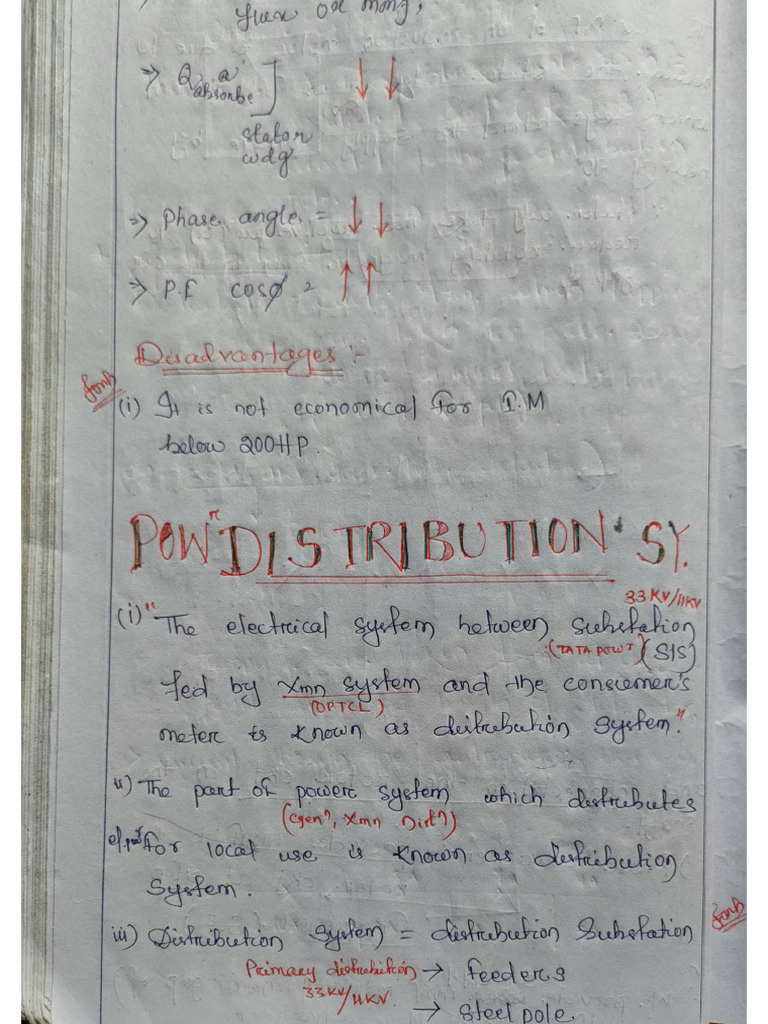 flux or mmf,
⇒ Q 'a' absorbe ] ↓ ↓
stator
wdg
⇒ Phase angle = ↓ ↓
⇒ P.F cosφ = ↑ ↑
Disadvantages :-
(i) It is not economical for I.M
below 200HP.
POWʳ DISTRIBUTION SY.
33KV/11KV
(i) "The electrical system between substation
(TATA POWʳ) (S/S)
fed by Xmn system and the consumer's
(OPTCL)
meter is known as distribution system."
ii) The part of power system which distributes
(Genⁿ, Xmn Distⁿ)
for local use is known as distribution
system.
iii) Distribution System = distribution Substation
Primary distribution → feeders
33KV/11KV
→ steel pole